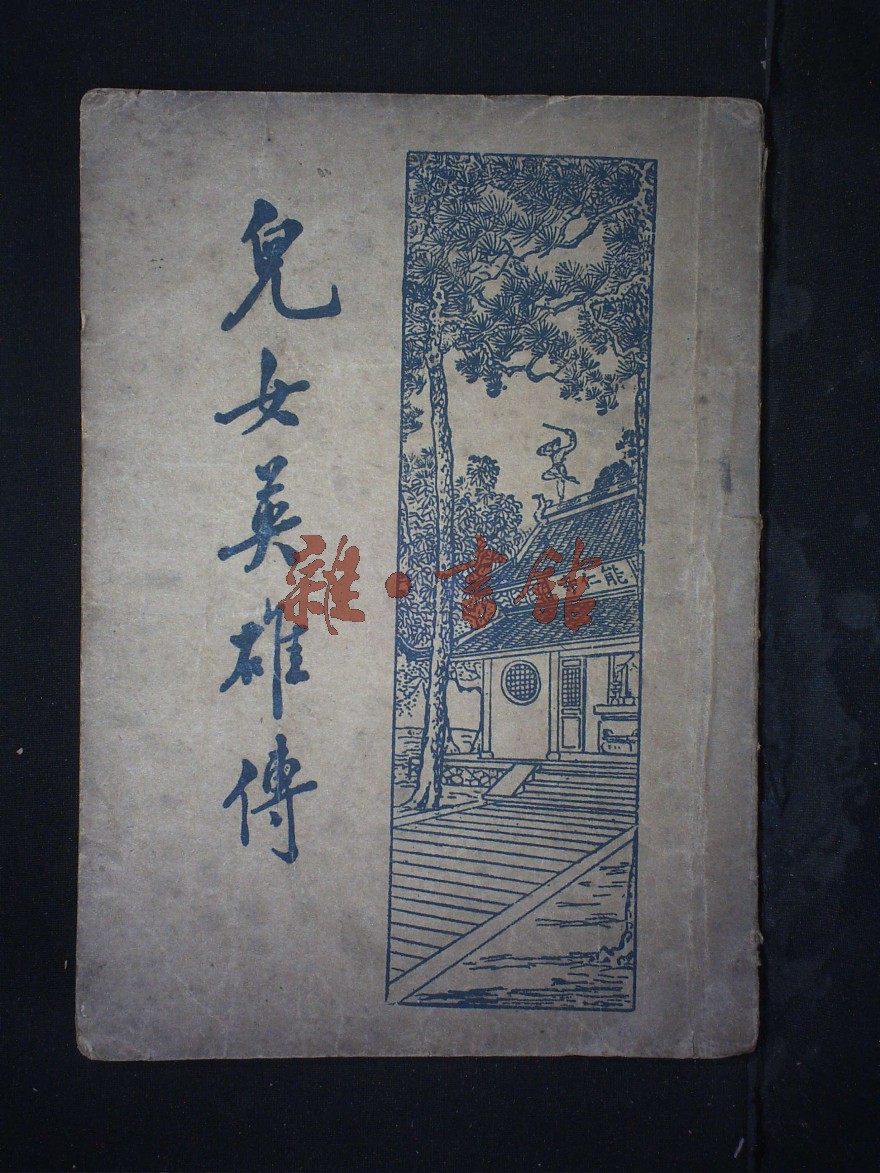 兒女英雄傳
能仁寺
雜·書館